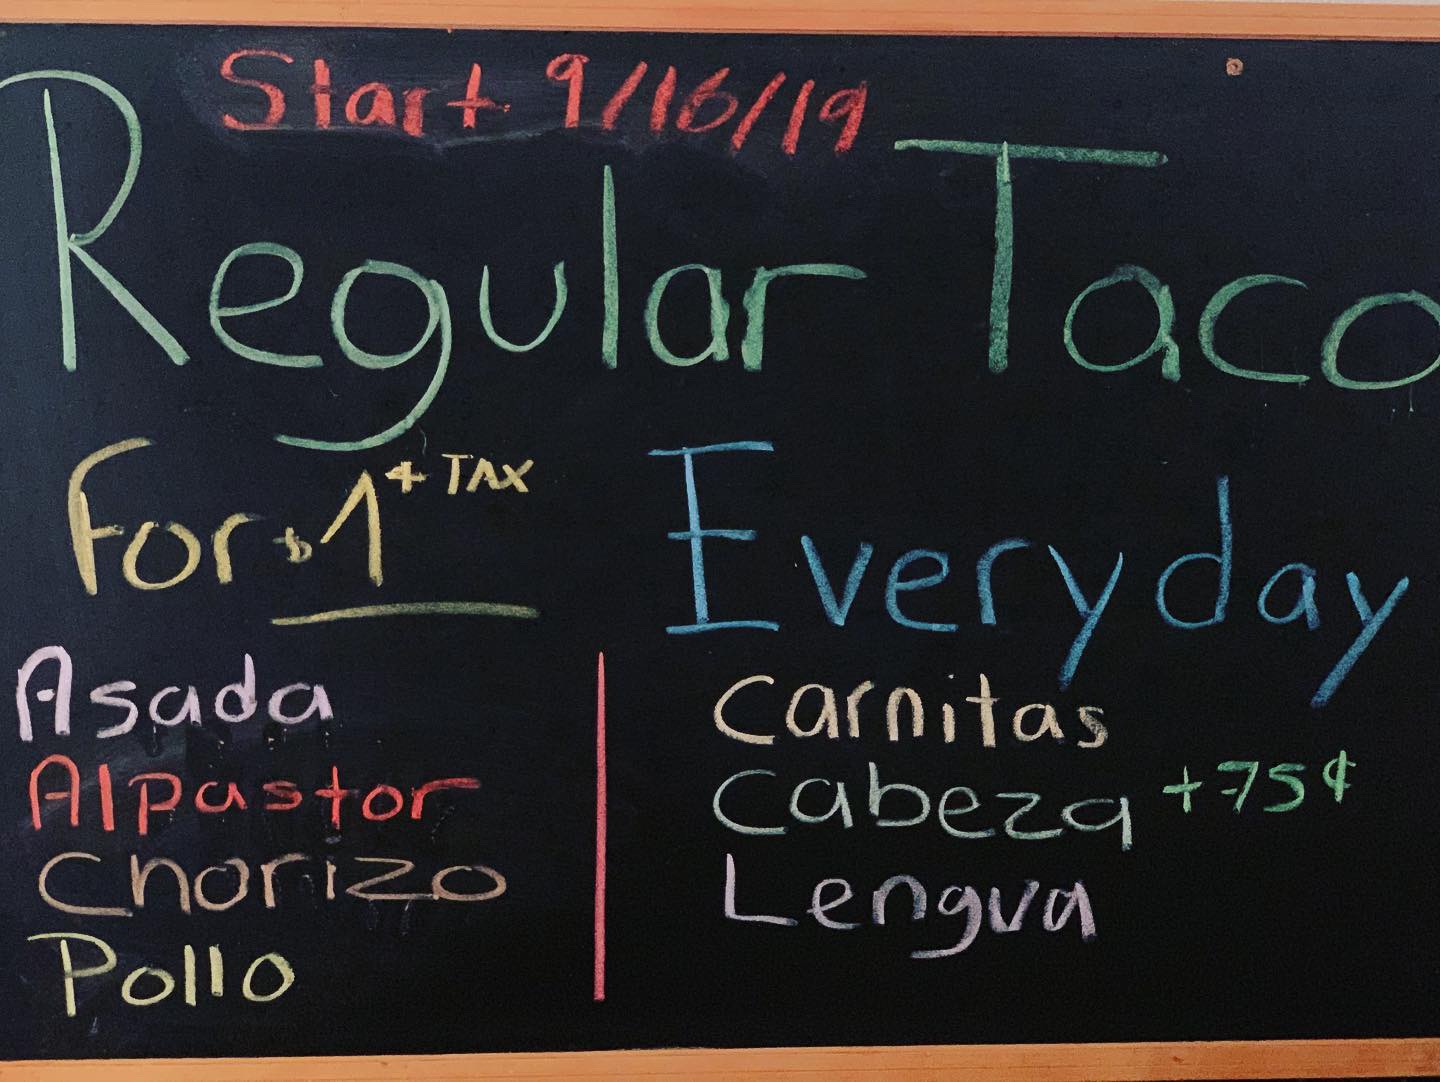 Start 9/16/19
Regular Taco
For $1 + TAX Everyday
Asada
Al pastor
Chorizo
Pollo
Carnitas
Cabeza +75¢
Lengua